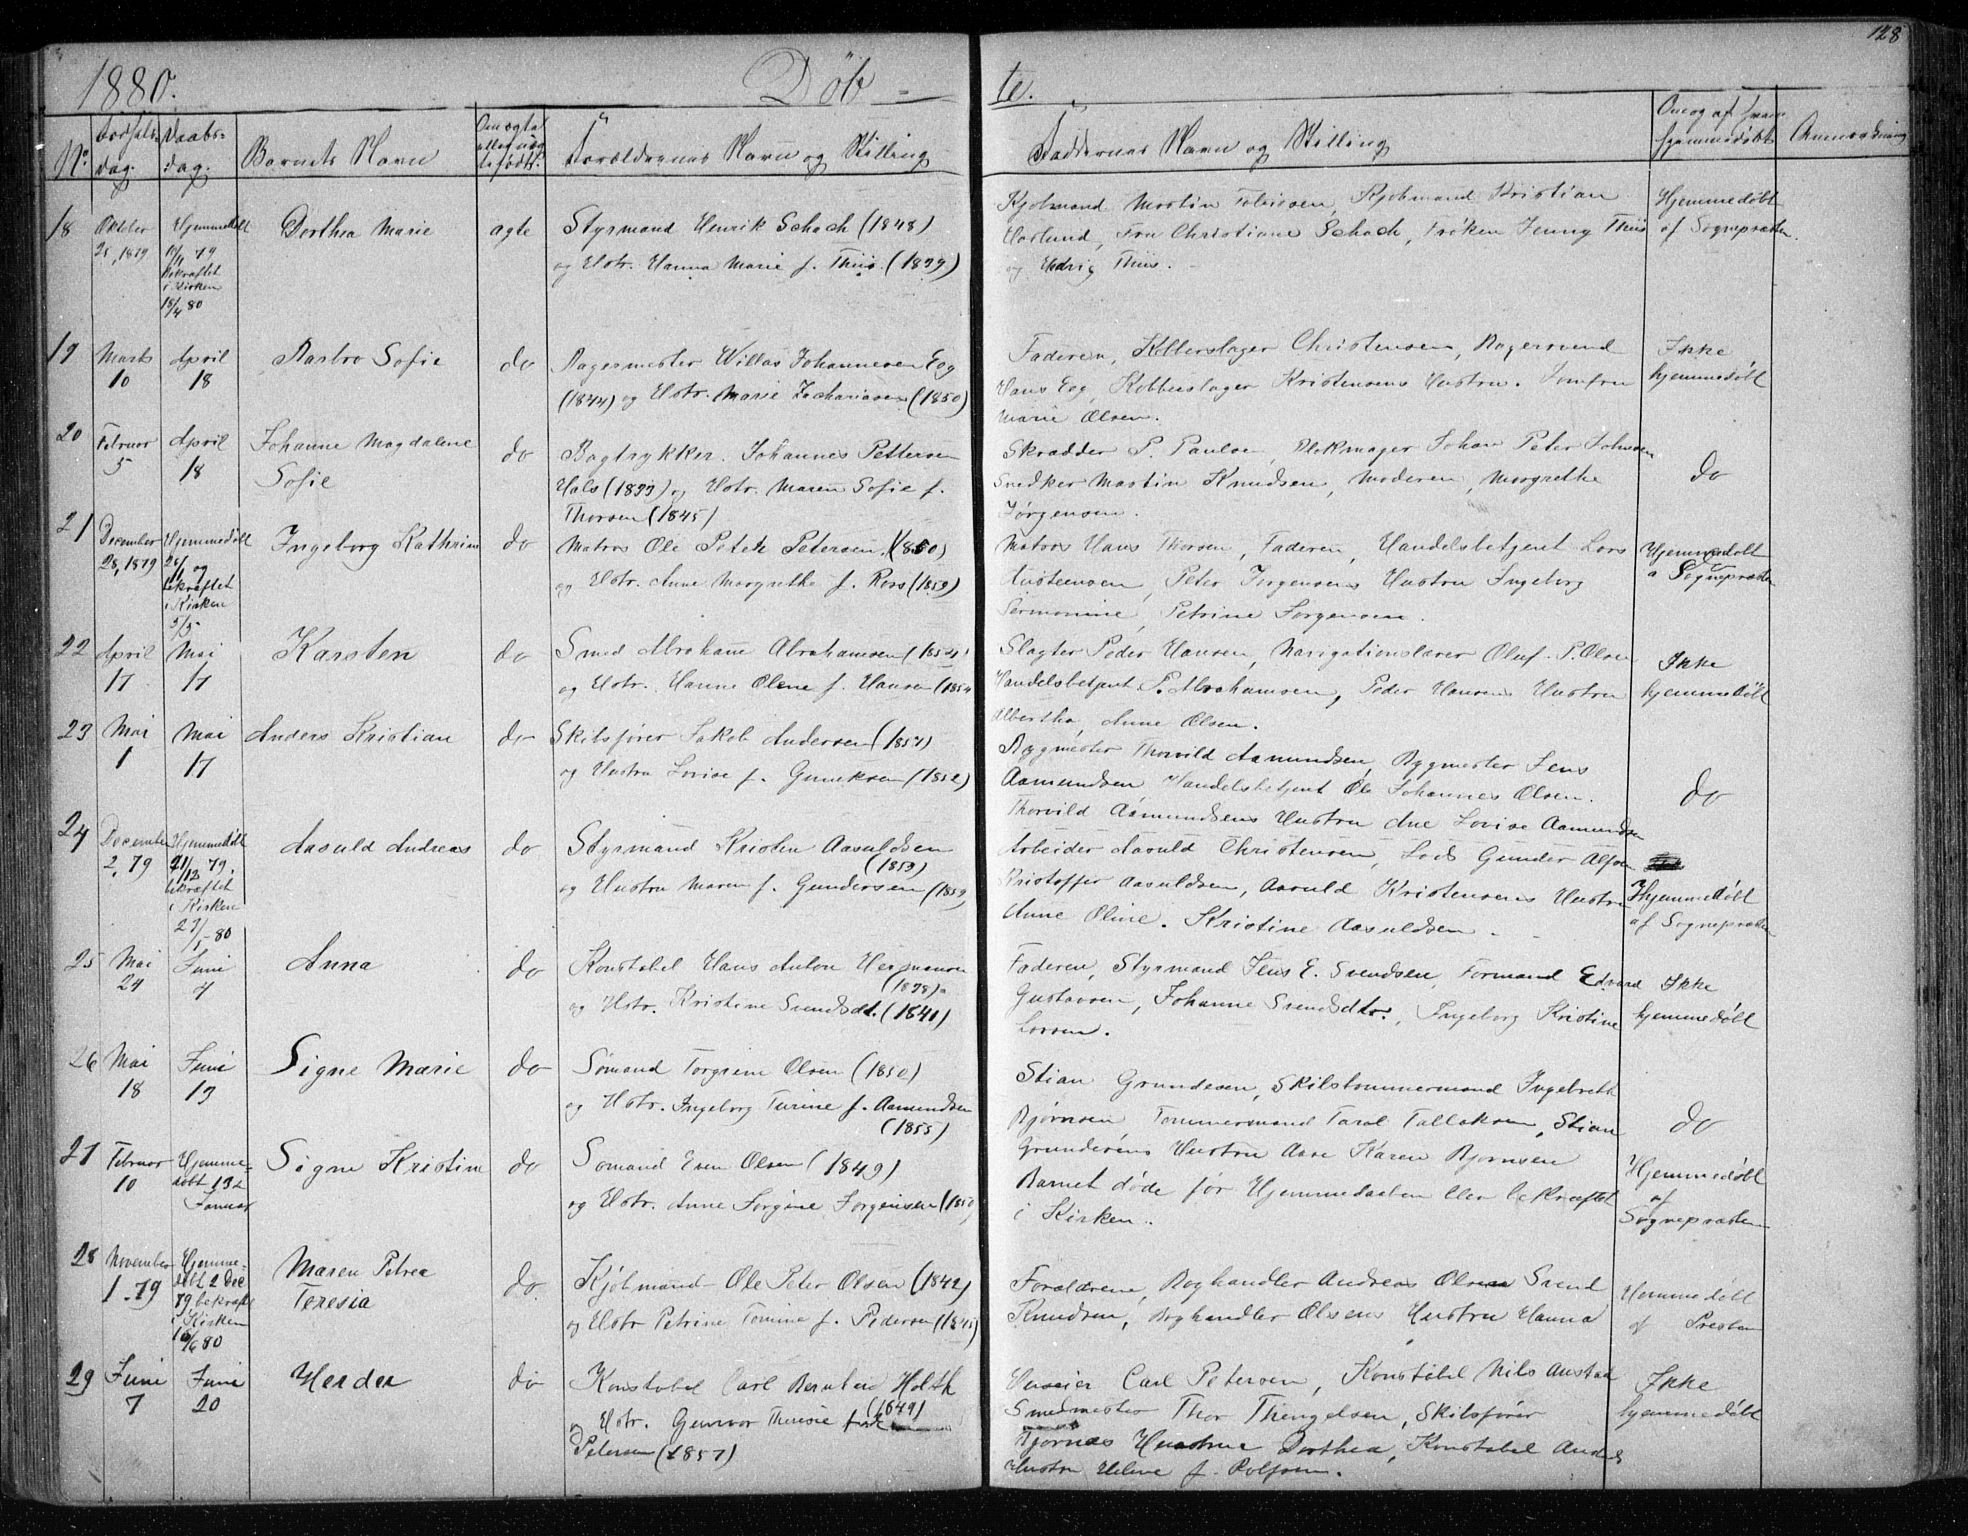 128
1880. Döb - te.
No Fødsels-dag. Daabs-dag. Barnets Navn Om ægte eller uægte født. Forældrenes Navn og Stilling Faddernes Navn og Stilling Om og af hvem hjemmedøbt Anmærkning
18 Oktober 25, 1879 Hjemmedøbt 10/11 79 bekræftet i Kirken 18/4 80 Dorthea Marie ægte Styrmand Henrik Schach (1848)
og Hstr. Hanna Marie f. Thiis. (1839)
Kjøbmand Martin Tobiesen, Kjøbmand Kristian
Haslund, Fru Christiane Schach, Frøken Jenny Thiis
og Hedvig Thiis. -
Hjemmedøbt
af Sognepræsten.
19 Marts 10 April 18 Barbro Sofie do Bagermester Willas Johannesen Eeg
(1844) og Hstr. Marie Zachariasen (1850)
Faderen, Kobberslager Christensen, Bagersvend
Hans Eeg, Kobberslager Kristensens Hustru. Jomfru
Marie Olsen.
Ikke
hjemmedøbt
20 Februar 5 April 18 Johanne Magdalene
Sofie do Bogtrykker. Johannes Pettersen
Hals (1833) og Hstr. Maren Sofie f.
Thorsen (1845)
Skrædder P. Paulsen, Blokmager Johan Peter Johnsen
Snedker Martin Knudsen, Moderen, Margrethe
Jørgensen.
do
21 December 28, 1879 Hjemmedøbt 26/1 og bekræftet i Kirken 5/5 Ingeborg Kathrine do Matros Ole Peter Petersen (1850)
og Hstr. Anne Margrethe f. Roos (1859)
Matros Hans Thorsen, Faderen, Handelsbetjent Lars
Austeensen, Peter Jørgensens Hustru Ingeborg
Petrine Jørgensen.
Hjemmedøbt
a Sognepræsten
22 April 17 Mai 17 Karsten do Smed Abraham Abrahamsen (1854)
og Hstr. Hanne Olene f. Hansen (1854
Slagter Peder Hansen, Navigationslærer Oluf. P. Olsen
Handelsbetjent P. Abrahamsen, Peder Hansens Hustru
Albertha, Anne Olsen.
Ikke
hjemmedøbt
23 Mai 1 Mai 17 Anders Kristian do Skibsfører Jakob Andersen (1851)
og Hustru Lovise f. (1852)
Bygmester Thorvild Aamundsen, Bygmester Jens
Aamundsen Handelsbetjent Ole Johannes Olsen.
Thorvild Aamundsens Hustru Ane Lovise Aamundsen
do
24 December 2, 79 Hjemmedøbt 21/12 79. bekræftet i Kirken 27/5- 80 Aasuld Andreas do Styrmand Kristen Aasuldsen
(1853)
og Hustru Maren f. Gundersen (1859)
Arbeider Aasuld Christensen, Lods Gunder Alfsen
Kristoffer Aasuldsen, Aasuld Kristensens Hustru
Anne Oline. Kristine Aasuldsen -
Hjemmedøbt
af Sognepræsten
25 Mai 24 Juni 4 Anna do Konstabel Hans Anton Hermansen
(1838)
og Hstr. Kristine Svendsdt. (1841)
Faderen, Styrmand Jens E. Svendsen, Formand Edvard
Gustavsen, Johanne Svendsdtr., Ingeborg Kristine
Larsen.
Ikke
hjemmedøbt
26 Mai 18 Juni 13 Signe Marie do Sømand Torgrim Olsen (1850)
og Hstr. Ingeborg Turine f. Aamundsen
(1855)
Stian Grundesen, Skibstømmermand Ingebreth
Bjørnsen Tømmermand Taral Tallaksen, Stian
Grundesens Hustru Aase Karen Bjørnsen
do
27 Februar 10 Hjemme-døbt 13de Januar Signe Kristine do Sømand Even Olsen (1849)
og Hstr. Anne Jørgine Jørgensen (1850)
Barnet døde før Hjemmedaaben blev bekræftet
i Kirken.
Hjemmedøbt
af
Sognepræsten
28 November 1.79 Hjemme-døbt 2 Dec 79 bekræftet i Kirken 16/6 80 Maren Petrea
Teresia do. Kjøbmand Ole Peter Olsen (1842)
og Hstr Petrine Tomine f. Pedersen (1845)
Forældrene, Boghandler Andreas Olsen Svend
Knudsen, Boghandler Olsens Hustru Hanna
Hjemmedøbt
af Presten
29 Juni 7 Juni 20 Herder do Konstabel Carl Berntsen Holth
(1849)
og Hstr. Gunvor Theresie født
Petersen (1857)
Carl Petersen, Konstabel Nils Austad
Smedmester Thor Thengelsen, Skibsfører
Bjørnes Hustru Dorthea, Konstabel
Hustru Helene f. Rolfsen.
Ikke
hjemmedøbt